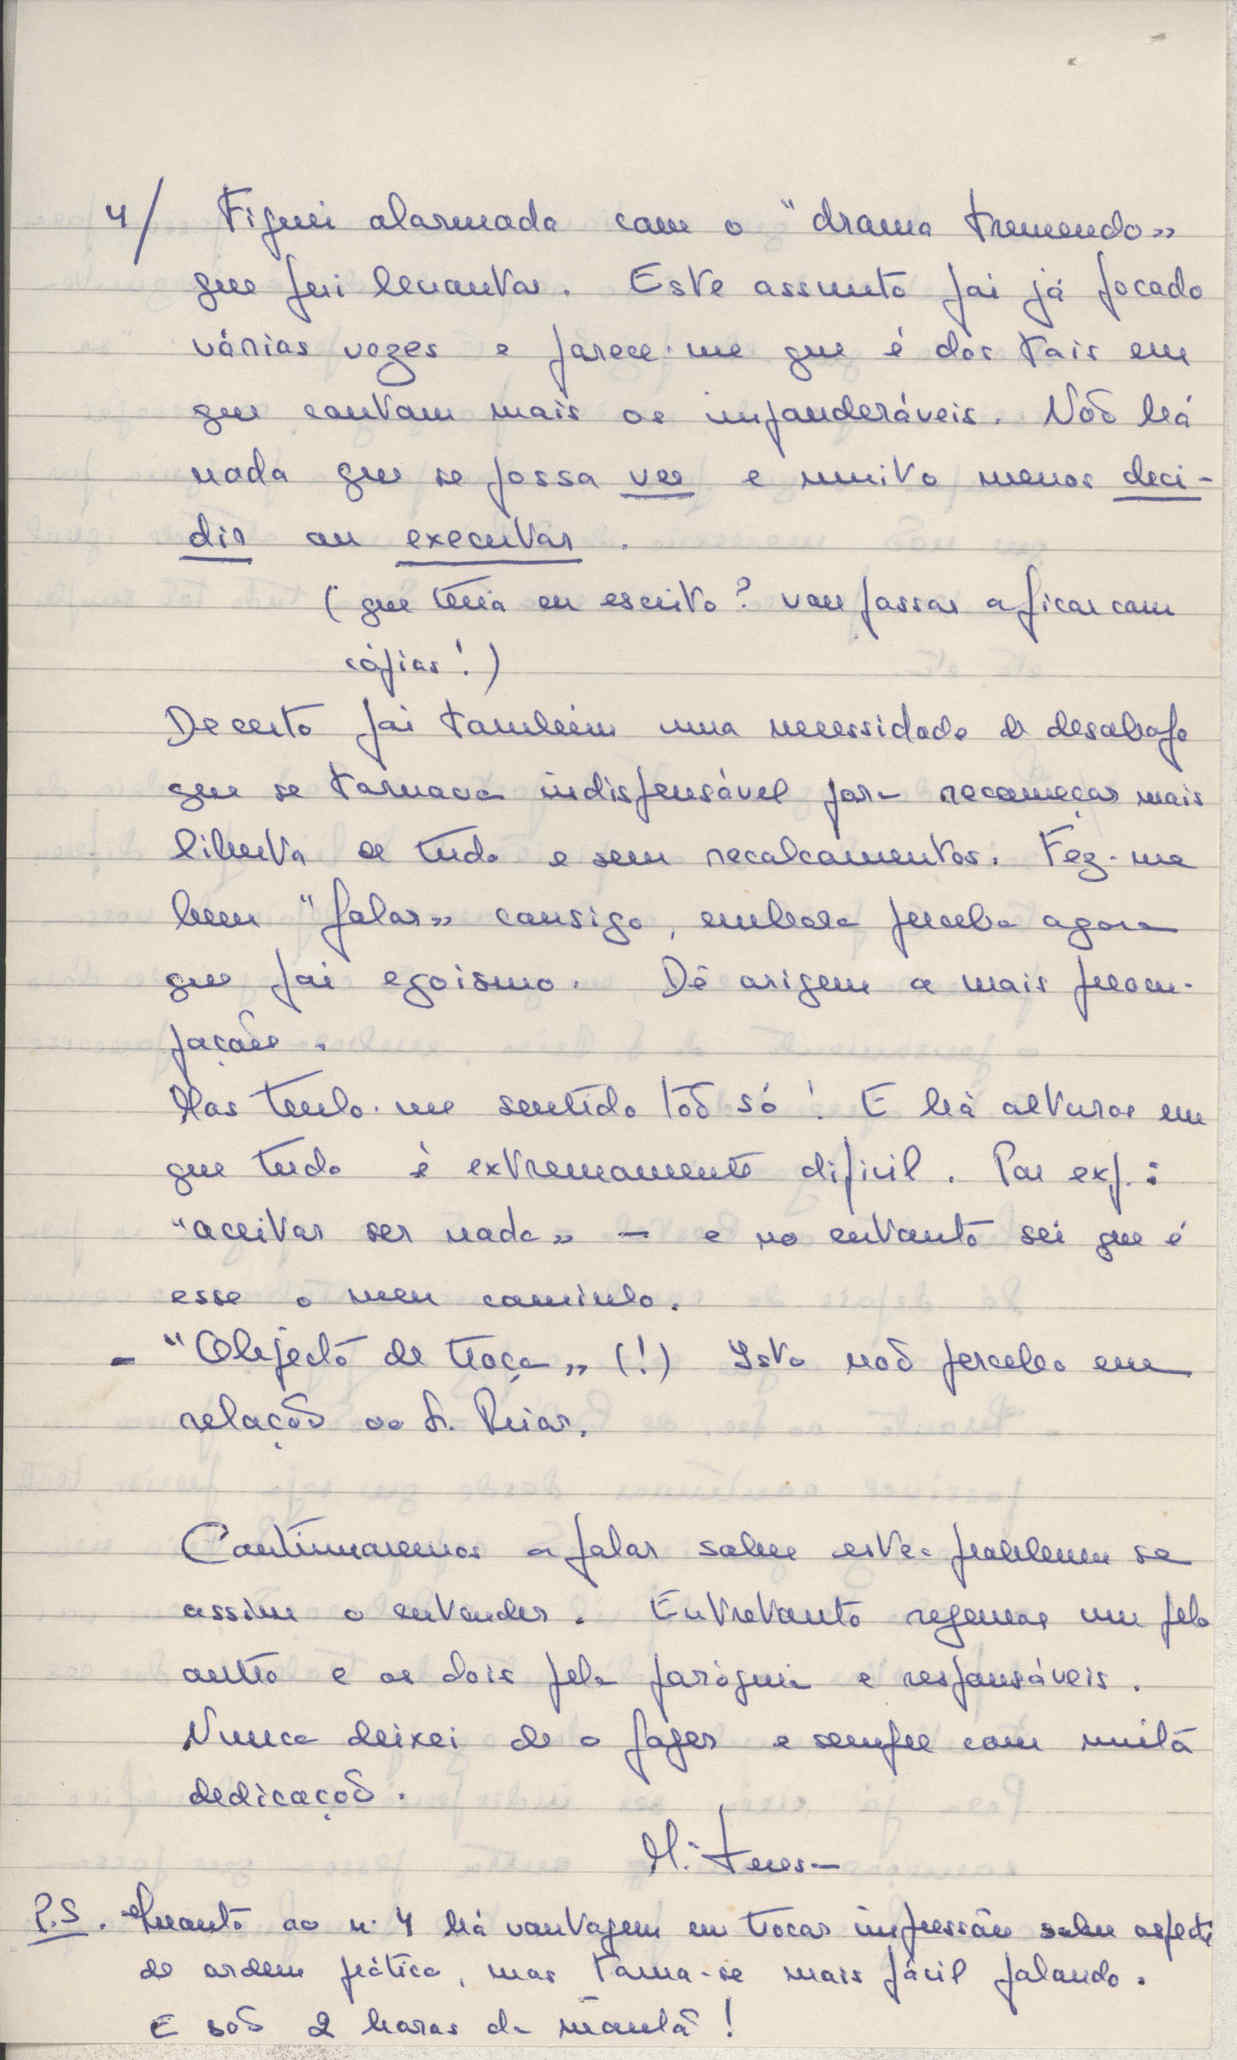 4/ Fiquei alarmada com o "drama tremendo»
que fui levantar. Este assunto foi já focado
várias vezes e parece-me que é dos tais em
que contam mais os imponderáveis. Não há
nada que se possa ver e muito menos deci-
dir ou executar.
(que teria eu escrito? vou passar a ficar com
cópias!)
De certo foi também uma necessidade de desabafo
que se tornava indispensável para recomeçar mais
liberta de tudo e sem recalcamentos. Fez-me
bem "falar» consigo, embora perceba agora
que foi egoismo. Dê origem a mais preocu-
pações.
Mas tenho-me sentido tão só! E há alturas em
que tudo é extremamente dificil. Por exp.:
"aceitar ser nada» - e no entanto sei que é
esse o meu caminho.
- "Objecto de troça» (!) Isto não percebo em
relação ao Sr. Prior.
Continuaremos a falar sobre este problema se
assim o entender. Entretanto rezemos um pelo
outro e os dois pela paróquia e responsáveis.
Nunca deixei de o fazer e sempre com muita
dedicação.
M. Teresa
P.S. Quanto ao n. 4 há vantagem em trocar impressões sobre aspectos
de ordem prática, mas torna-se mais fácil falando.
E são 2 horas da manhã!